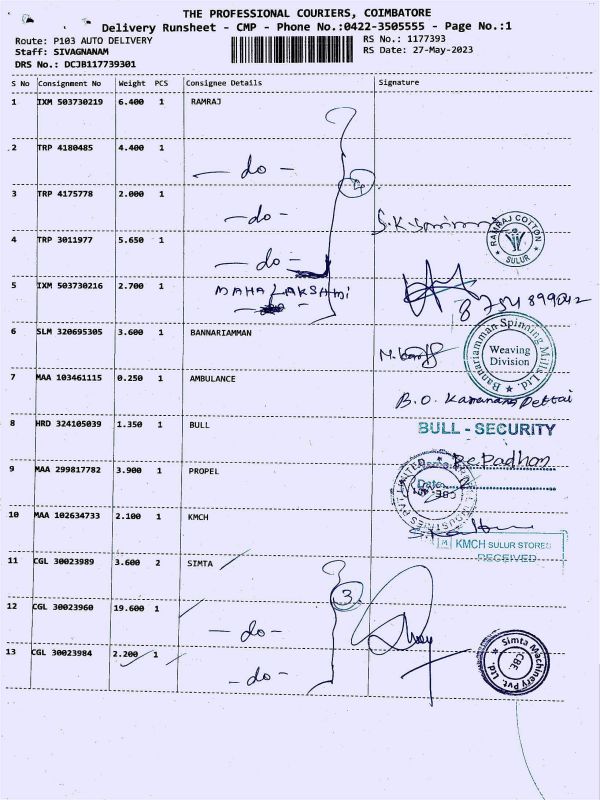 THE PROFESSIONAL COURIERS, COIMBATORE
Delivery Runsheet - CMP - Phone No.:0422-3505555 - Page No.:1
Route: P103 AUTO DELIVERY
RS No.: 1177393
Staff: SIVAGNANAM
RS Date: 27-May-2023
DRS No.: DCJB117739301
S No Consignment No Weight PCS Consignee Details Signature
1 IXM 503730219 6.400 1 RAMRAJ
2 TRP 4180485 4.400 1 - do -
4
3 TRP 4175778 2.000 1 - do -
RAMRAJ COTTON SULUR
4 TRP 3011977 5.650 1 - do -
5 IXM 503730216 2.700 1 MAHA LAKSHMI
6 SLM 320695305 3.600 1 BANNARIAMMAN
Bannariamman Spinning Mills Ltd.
Weaving
Division
7 MAA 103461115 0.250 1 AMBULANCE
8 HRD 324105039 1.350 1 BULL
BULL - SECURITY
9 MAA 299817782 3.900 1 PROPEL
10 MAA 102634733 2.100 1 KMCH
M KMCH SULUR STORES
RECEIVED
11 CGL 30023989 3.600 2 SIMTA
3
12 CGL 30023960 19.600 1 - do -
13 CGL 30023984 2.200 1 - do -
Simta Machinery Pvt. Ltd. CBE